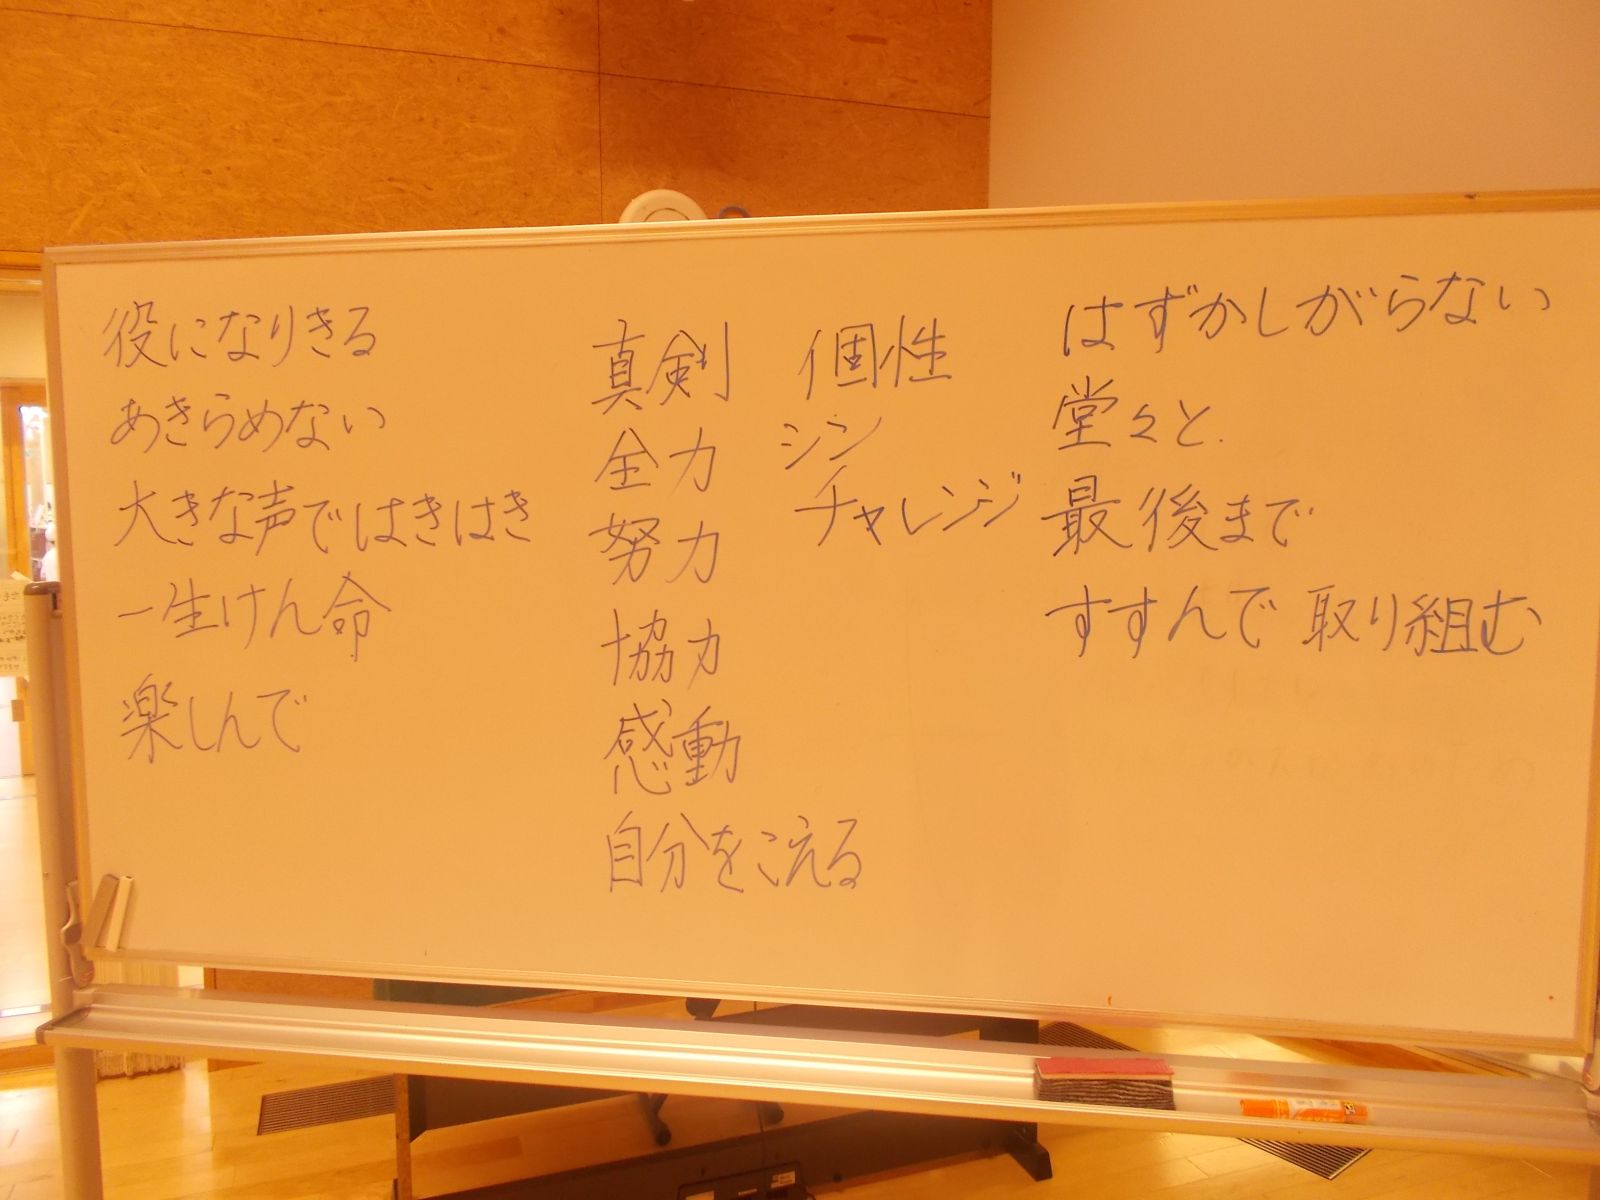 役になりきる
あきらめない
大きな声ではきはき
一生けん命
楽しんで
真剣
全力
努力
協力
感動
自分をこえる
個性
シン
チャレンジ
はずかしがらない
堂々と.
最後まで
すすんで取り組む